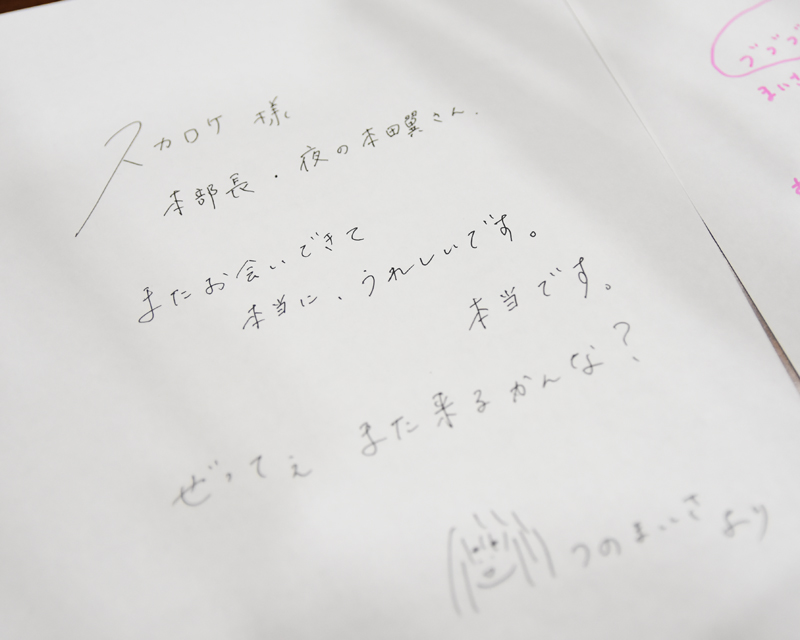 スカロケ 様
本部長・夜の本田翼さん.
またお会いできて
本当に、うれしいです。
本当です。
ぜってぇ また来るかんな?
つのまいさより
づづづ
まいさ